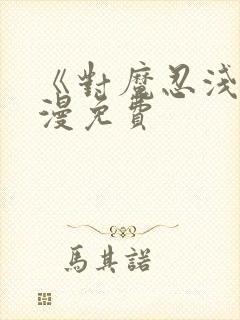 《對魔忍淺
漫免費
馬其諾